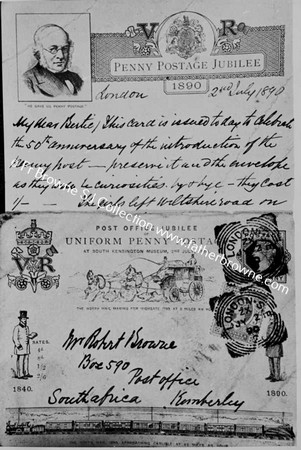 V R
PENNY POSTAGE JUBILEE
1890
"HE GAVE US PENNY POSTAGE."
London 2nd July 1890
My dear Bertie / This card is issued to day to celebrate
the 50th anniversary of the introduction of the
penny post — preserve it and the envelope
as they will be curiosities by & bye — they cost
1/- left Wiltshire road on
POST OFFICE JUBILEE
OF
UNIFORM PENNY POSTAGE
AT SOUTH KENSINGTON MUSEUM, 2ND JULY
VR
LONDON
LONDON
RATES.
Mr Robert Browne
Box 590
Post office
1840. 1890.
South africa Kimberley